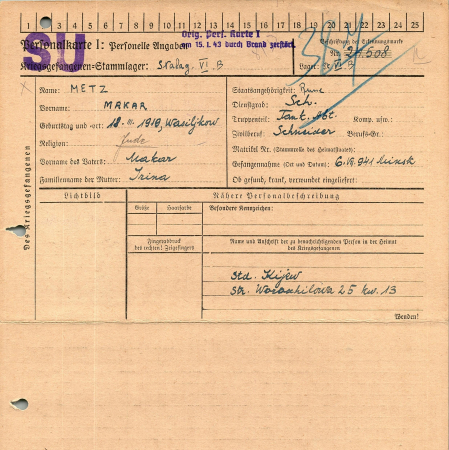 1 2 3 4 5 6 7 8 9 10 11 12 13 14 15 16 17 18 19 20 21 22 23 24 25
SU
Personalkarte I: Personelle Angaben
Orig. Pers. Karte I
am 15.1.43 durch Brand zerstört.
Beschriftung der Erkennungsmarke
Kriegsgefangenen-Stammlager: Stalag VI B
Nr.
Lager: VI B
Des Kriegsgefangenen
Name: METZ
Vorname: MAKAR
Geburtstag und -ort: 1919, Wasiljkow
Religion: Jude
Vorname des Vaters: Makar
Familienname der Mutter: Irina
Staatsangehörigkeit: Russe
Dienstgrad: Sch.
Truppenteil: Tank. Abt. Komp. usw.:
Zivilberuf: Schneider Berufs-Gr.:
Matrikel Nr. (Stammrolle des Heimatstaates):
Gefangennahme (Ort und Datum): Minsk
Ob gesund, krank, verwundet eingeliefert:
Lichtbild
Nähere Personalbeschreibung
Größe
Haarfarbe
Besondere Kennzeichen:
Fingerabdruck
des rechten! Zeigefingers
Name und Anschrift der zu benachrichtigenden Person in der Heimat
des Kriegsgefangenen
Std. Kijew
Str. Woroschilowa 25 kw. 13
Wenden!